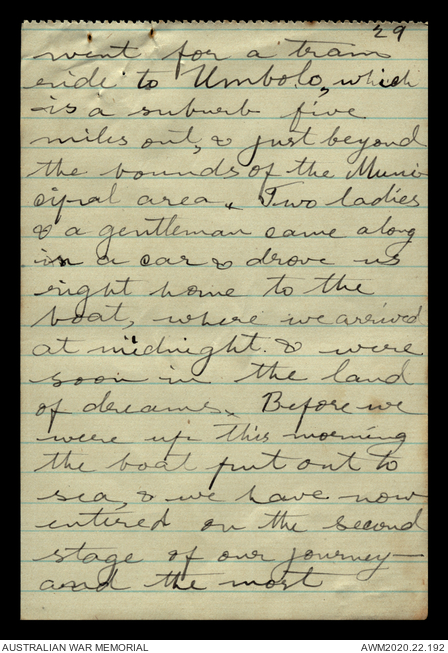 29
went for a tram
ride to Umbolo, which
is a suburb five
miles out, & just beyond
the bounds of the Muni-
cipal area. Two ladies
& a gentleman came along
in a car & drove us
right home to the
boat, where we arrived
at midnight. & were
soon in the land
of dreams. Before we
were up this morning
the boat put out to
sea, & we have now
entered on the second
stage of our journey—
and the most
AUSTRALIAN WAR MEMORIAL
AWM2020.22.192